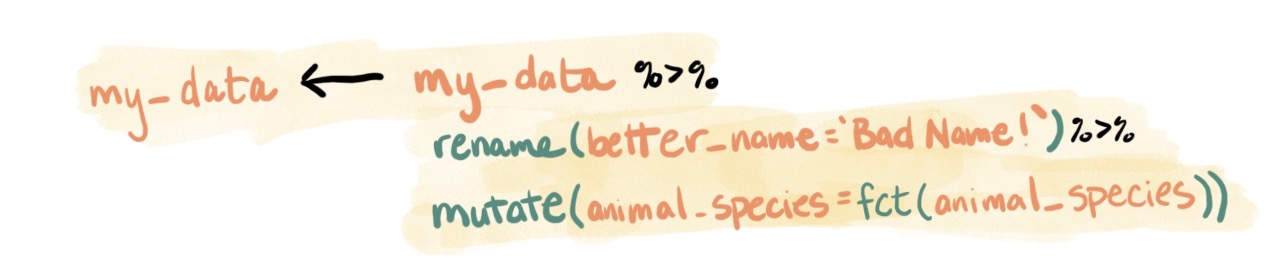 my_data ← my_data %>%
rename(better_name=`Bad Name!`)%>%
mutate(animal_species=fct(animal_species))